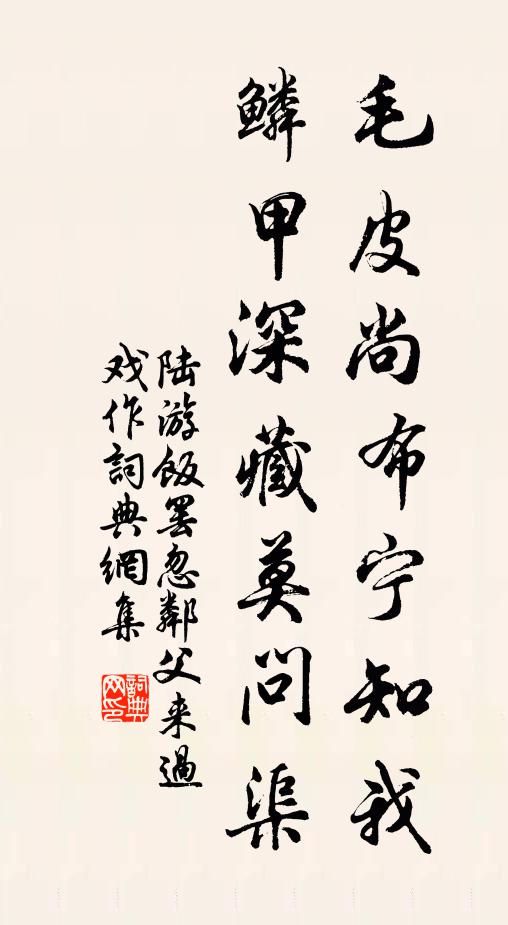 毛皮尚布宁知我
鳞甲深藏莫问渠
陆游饭罢忽鄰父来過
戏作詞典網集
詞典
网印